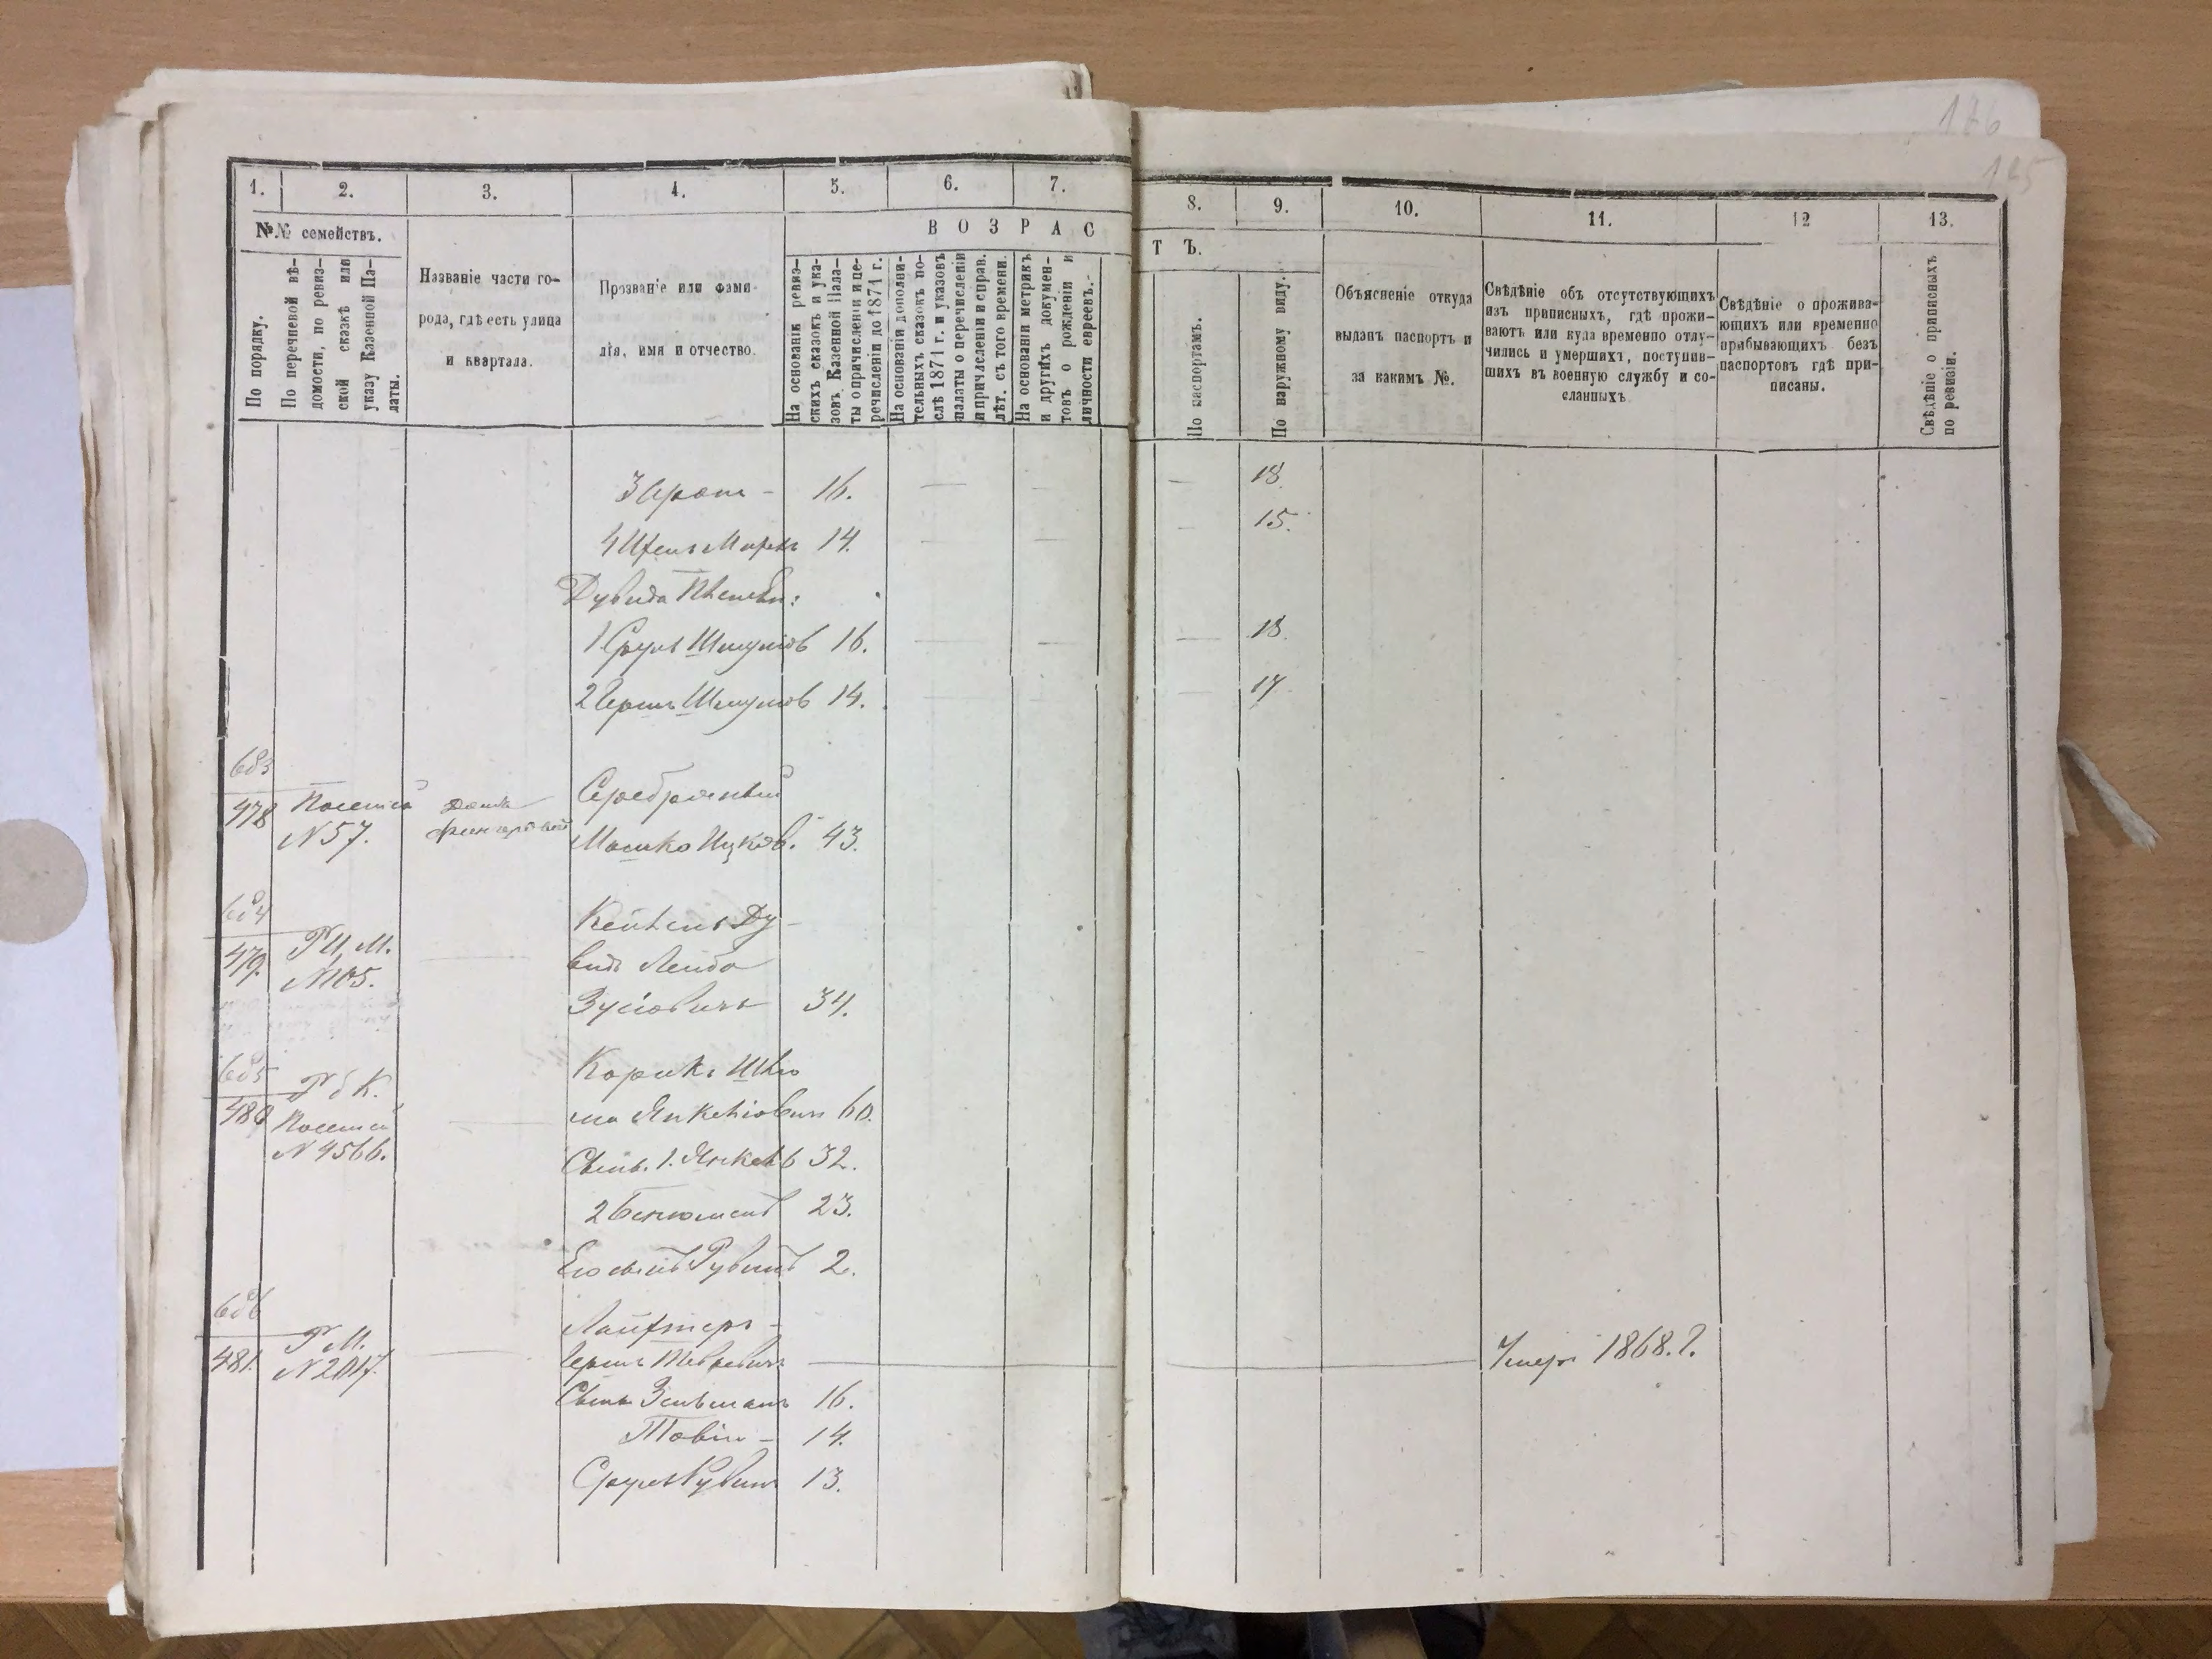 176
125
1.
2.
3.
4.
5.
6.
7.
8.
9.
10.
11.
12
13.
№№ семействъ.
По порядку.
По перечневой вѣ-
домости, по ревиз-
ской сказкѣ или
указу Казенной Па-
латы.
Названіе части го-
рода, гдѣ есть улица
и квартала.
Прозваніе или фами-
лія, имя и отчество.
ВОЗРАС
ТЪ.
На основаніи ревиз-
скихъ сказокъ и ука-
зовъ Казенной Пала-
ты о причисленіи и пе-
речисленіи до 1871 г.
На основаніи дополни-
тельныхъ сказокъ по-
слѣ 1871 г. и указовъ
палаты о перечисленіи
и причисленіи и справ.
лѣт. съ того времени.
На основаніи метрикъ
и другихъ докумен-
товъ о рожденіи и
личности евреевъ.-
По паспортамъ.
По наружному виду.
Объясненіе откуда
выданъ паспортъ и
за какимъ №.
Свѣдѣніе объ отсутствующихъ
изъ приписныхъ, гдѣ прожи-
ваютъ или куда временно отлу-
чились и умершихъ, поступив-
шихъ въ военную службу и со-
сланныхъ
Свѣдѣніе о прожива-
ющихъ или временно
прибывающихъ безъ
паспортовъ гдѣ при-
писаны.
Свѣдѣніе о приписныхъ
по ревизіи.
3 Аронъ - 16. 18.
4 14. 15.
Дувида
1 Сруль Шмулов 16. 18.
2 Герш Шмулов 14. 17
683
478
N 57.
Серебряный
Мошко Ицков. 43.
684
479.
N 105.
Ду-
видъ Лейба
Зусіовичъ 34.
685
480
N 4566.
Корикъ Шлю
ма Янкеліовичъ 60.
Сынъ. 1. Янкель 32.
2 Бенюмень 23.
Его сынъ Рувинъ 2.
686
481.
Р М.
N 2017.
Лайфтеръ -
Гершъ Умеръ 1868. г.
Сынъ Зельманъ 16.
Товій - 14.
Сруль Рувинъ 13.